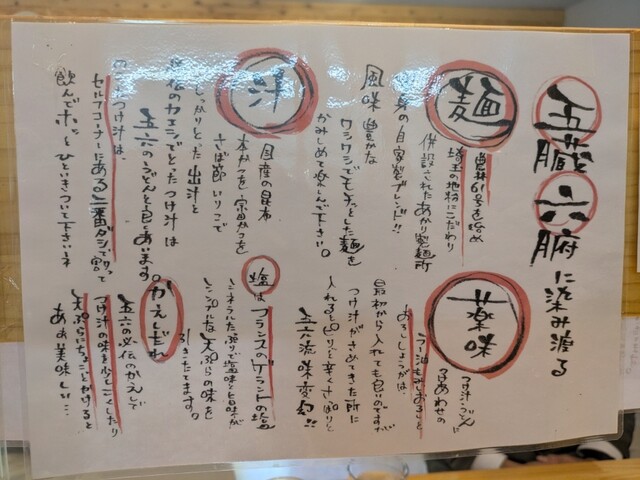 五臓六腑に染み渡る
麺
農林61号を始め
埼玉の地粉にこだわり
併設されたあかり製麺所
自家製ブレンド!!
風味豊かな
ワシワシでもちっとした麺を
かみしめて楽しんで下さい。
汁
国産の昆布
本かつを・宗田かつを
さば節・いりこで
しっかりとった出汁と
伝のカエシでとったつけ汁は
五六のうどんと良くあいます。
つけ汁は、
セルフコーナーにある二番ダシで割って
飲んでホッとひといきついて下さいネ
薬味
つけ汁・うどんに
つけあわせの
おろししょうがは、
最初から入れても良いのですが
つけ汁がさめてきた所に
入れるとピリッと辛くさっぱりと
五六流味変幻!!
塩はフランスのゲラントの塩
ミネラルたっぷりで塩味と旨味が
シンプルな天ぷらの味を
引きたてます。
かえしだれ
五六の必伝のかえしで
つけ汁の味を少しこくしたり
天ぷらにちょこっとかけると
あぁ美味しい…